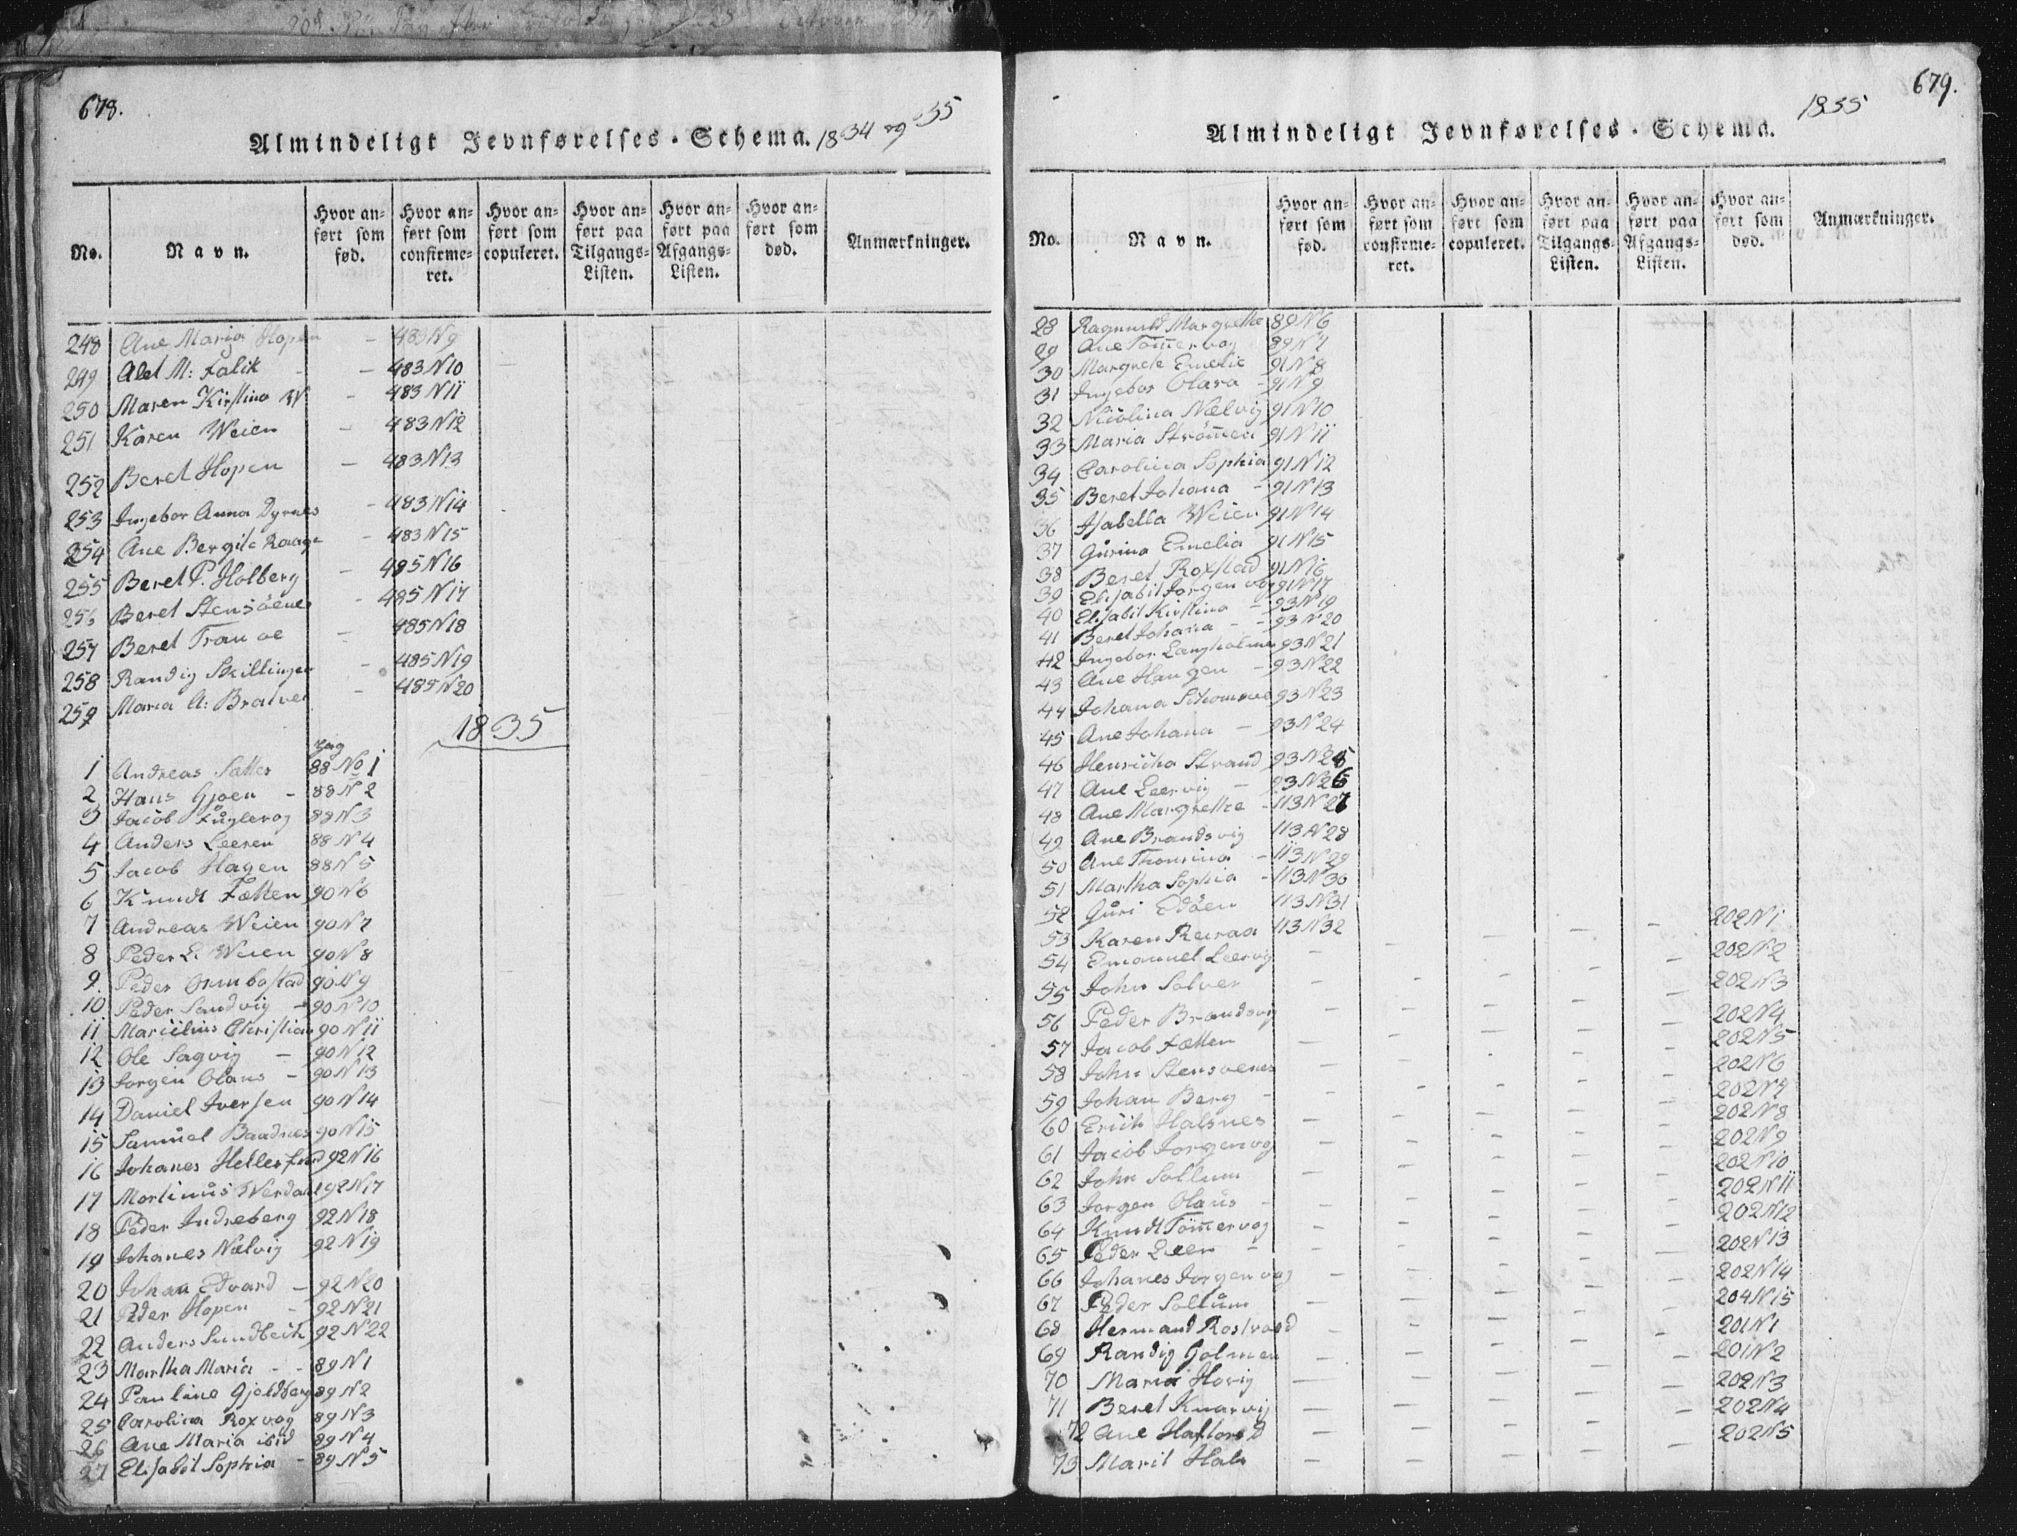 678.
Almindeligt Jevnførelses-Schema. 1834 og 35
No.
Navn.
Hvor anført som fød.
Hvor anført som confirmeret.
Hvor anført som copuleret.
Hvor anført paa Tilgangs-Listen.
Hvor anført paa Afgangs-Listen.
Hvor anført som død.
Anmærkninger.
248 Ane Maria Hopen - 483 N 9
249 Alet M: Falik - 483 N 10
250 Maren Kirstina W - 483 N 11
251 Karen Weien - 483 N 12
252 Beret Hopen - 483 N 13
253 Ingebor Anna Dyrnes - 483 N 14
254 Ane Bergite - 483 N 15
255 Beret P. Holberg - 485 N 16
256 Beret Stensöenes - 485 N 17
257 Beret Tranoe - 485 N 18
258 Randig Skillingen - 485 N 19
259 Maria A: Bratver - 485 N 20
1835
pag
1 Andreas Sætter 88 No 1
2 Hans Gjøen - 88 N 2
3 Jacob Füglevog 88 N 3
4 Anders Leeren 88 N 4
5 Jacob Hagen 88 N 5
6 Knudt Fætten 90 N 6
7 Andreas Weien 90 N 7
8 Peder L. Weien 90 N 8
9. Peder Ormbostad 90 N 9
10 Peder Sandvig - 90 N 10
11 Marcilius Christian 90 N 11
12 Ole Sagvig - 90 N 12
13 Jorgen Olaus - 90 N 13
14 Daniel Iversen 90 N 14
15 Samuel Baadnes 90 N 15
16 Johanes 92 N 16
17 Mortinus Werdal 92 N 17
18 Peder Indreberg 92 N 18
19 Johanes Nælvig 92 N 19
20 Johan Edvard - 92 N 20
21 Peder Hopen - 92 N 21
22 Anders 92 N 22
23 Martha Maria - - 89 N 1
24 Pauline Gjeldberg 89 N 2
25 Carolina Roxvog 89 N 3
26 Ane Maria ibid 89 N 4
27 Elisabet Sophia - 89 N 5
679.
Almindeligt Jevnførelses-Schema. 1835
No.
Navn.
Hvor anført som fød.
Hvor anført som confirmeret.
Hvor anført som copuleret.
Hvor anført paa Tilgangs-Listen.
Hvor anført paa Afgangs-Listen.
Hvor anført som død.
Anmærkninger.
28 Ragnild Margrethe 89 N 6
29 Ane Tömervog 89 N 7
30 Margrete Emelie 91 N 8
31 Ingebor Olava - 91 N 9
32 Nicolina Nælvig 91 N 10
33 Maria Strömen 91 N 11
34 Carolina Sophia 91 N 12
35 Beret Johana - 91 N 13
36 Isabella Weien 91 N 14
37 Gurina Emelia 91 N 15
38 Beret Roxstad 91 N 16
39 Elisabet Jorgenvog 91 N 17
40 Elisabet Kirstina - 93 N 19
41 Beret Johana - - 93 N 20
42 Ingebor Langholmen 93 N 21
43 Ane Haugen - 93 N 22
44 Johana 93 N 23
45 Ane Johana - 93 N 24
46 Henricha Strand 93 N 25
47 Ane Leervig - 93 N 26
48 Ane Margrethe - 113 N 27
49 Ane Brandsvig 113 N 28
50 Ane Thomina - 113 N 29
51 Martha Sophia - 113 N 30
52 Guri Edöen 113 N 31
53 Karen 113 N 32 202 N 1
54 Emanuel Leervig - 202 N 2
55 John Solver - 202 N 3
56 Peder Brandsvig - 202 N 4
57 Jacob Fætten - 202 N 5
58 John Stensoenes - 202 N 6
59 Johan Berg - 202 N 7
60 Erich Halsnes - 202 N 8
61 Jacob Jorgenvog - 202 N 9
62 John Sollum - 202 N 10
63 Jorgen Olaus - 202 N 11
64 Knudt Tömervog - 202 N 12
65 Peder Leen - 202 N 13
66 Johanes Jorgenvog - 202 N 14
67 Peder Sollum - 204 N 15
68 Hermand Rostvold - 201 N 1
69 Randig Golmen - 201 N 2
70 Maria Hovig - 202 N 3
71 Beret Knarvig - 202 N 4
72 Ane Haftors D 202 N 5
73 Marit Hals